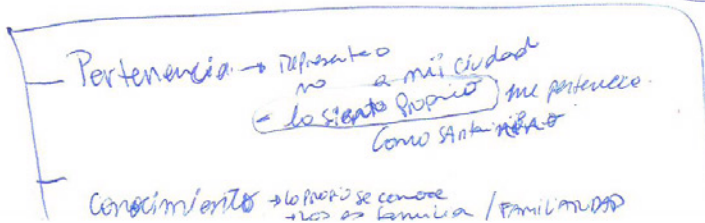 Pertenencia → Representa o
no a mi ciudad
- lo siento Propio me pertenece.
Como
Conocimiento → lo propio se conoce
es familia / FAMILIARIDAD